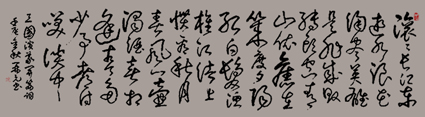 滚滚长江东
逝水浪花
淘尽英雄
是非成败
转头空青
山依旧在
几度夕阳
红白发渔
樵江渚上
惯看秋月
春风一壶
浊酒喜相
逢古今多
少事都付
笑谈中
三国演义开篇词